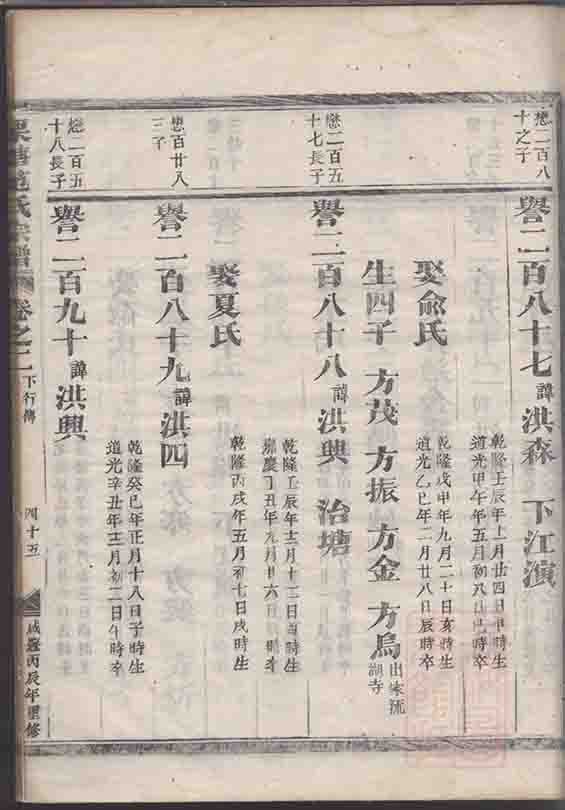 懋二百八
十之子
譽二百八十七諱洪森 下江演
乾隆壬辰年十一月廿四日申時生
道光甲午年五月初八日巳時卒
娶俞氏
乾隆戊申年九月二十日亥時生
道光乙巳年二月廿八日辰時卒
生四子 方茂 方振 方金 方烏出家流
湖寺
懋二百五
十七長子
譽二百八十八諱洪興 治塘
乾隆壬辰年十二月十二日酉時生
嘉慶丁丑年九月廿六日時卒
娶夏氏
乾隆丙戌年五月初七日戌時生
懋百廿八
三子
譽二百八十九諱洪四
乾隆癸巳年正月十八日子時生
道光辛丑年十二月初二日午時卒
懋二百五
十八長子
譽二百九十諱洪興
氏宗譜 卷之二 下行傳 四十五 咸豐丙辰年重修